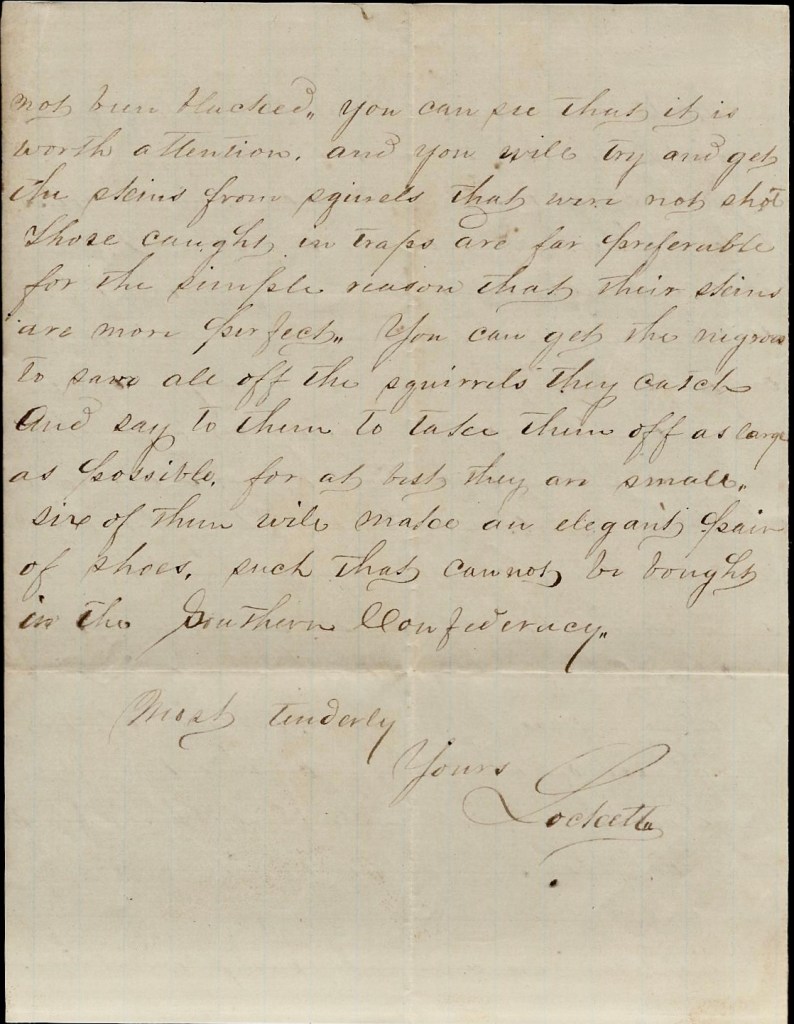 not been blacked,, you can see that it is
worth attention. and you will try and get
the skins from sqirrels that were not shot
Those caught in traps are far preferable
for the simple reason that their skins
are more perfect,, You can get the negroes
to save all off the squirrels they catch
And say to them to take them off as large
as possible, for at best they are small,,
six of them will make an elegant pair
of shoes. such that cannot be bought
in the Southern Confederacy,,
Most tenderly
Yours
Lockett